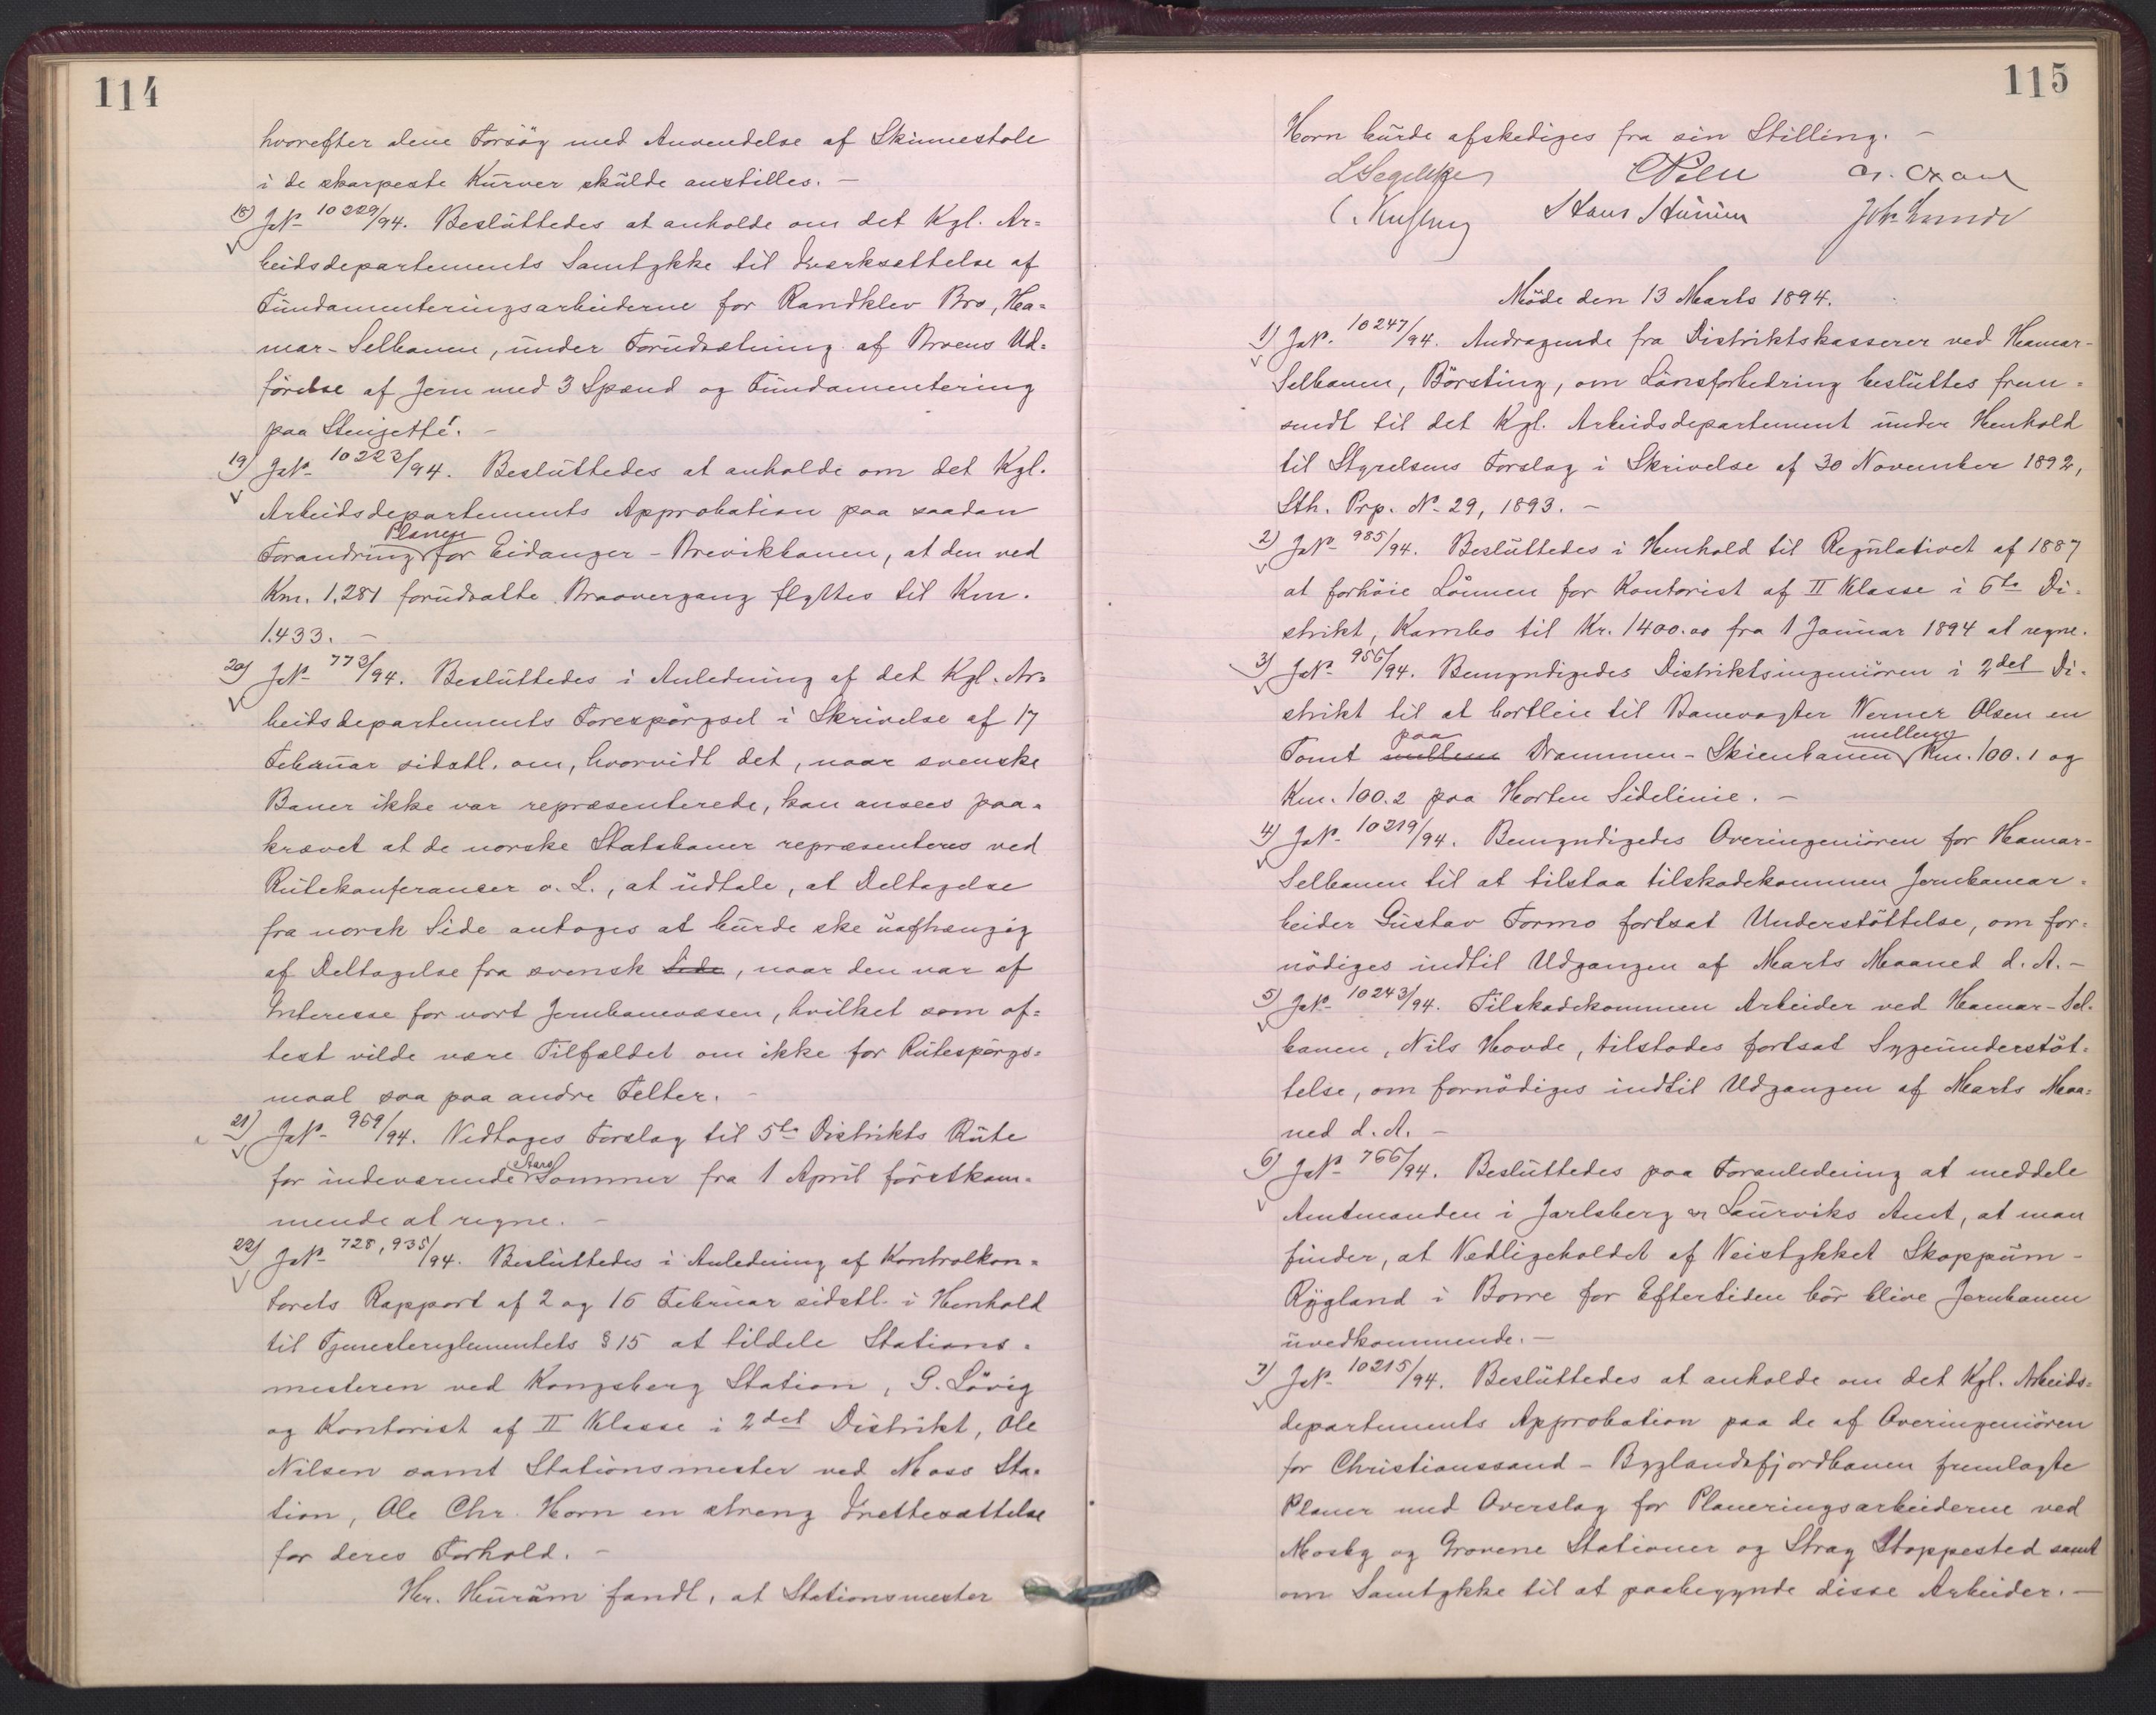 114
hvorefter dene Forsög med Anvendelse af Skinnestole
i de skarpeste Kurver skulde anstilles. —
18) JN⁰ 10229/94. Besluttedes at anholde om det Kgl. Ar=
beidsdepartements Samtykke til Iværksættelse af
Fundamenteringsarbeiderne for Randklev Bro, Ha=
mar-Selbanen, under Forudsætning af Broens Ud=
förelse af Jern med 3 Spænd og Fundamentering
paa Stenjetté. —
19) JN⁰ 10223/94. Besluttedes at anholde om det Kgl.
Arbeidsdepartements Approbation paa saadan
Forandring Planen for Eidanger-Brevikbanen, at den ved
Km. 1.281 forudsatte Braovergang flyttes til Km.
1.433. —
20) JN⁰ 773/94. Besluttedes i Anledning af det Kgl. Ar=
beidsdepartements Forespörgsel i Skrivelse af 17
Februar sidstl. om, hvorvidt det, naar svenske
Baner ikke var repræsenterede, kan ansees paa=
krævet at de norske Statsbaner repræsenteres ved
Rutekonferanser o. L., at udtale, at Deltagelse
fra norsk Side antoges at burde ske uafhængig
af Deltagelse fra svensk Side, naar den var af
Interesse for vort Jernbanevæsen, hvilket som of=
test vilde være Tilfældet om ikke for Rutespörgs=
maal saa paa andre Felter. —
21) JN⁰ 969/94. Vedtoges Forslag til 5te Distrikts Rute
for indeværende Aars Sommer fra 1 April förstkom=
mende at regne. —
22) JN⁰ 728, 935/94. Besluttedes i Anledning af Kontrolkon=
torets Rapport af 2 og 16 Februar sidstl. i Henhold
til Tjenestereglementets § 15 at tildele Stations=
mesteren ved Kongsberg Station, G. Lövig
og Kontorist af II Klasse i 2det Distrikt, Ole
Nilsen samt Stationsmester ved Moss Sta=
tion, Ole Chr. Horn en streng Irettesættelse
for deres Forhold. —
Hr. Huruum fandt, at Stationsmester
115
Horn burde afskediges fra sin Stilling. —
LSegelcke CPihl
Hans Huruum Joh. Lunde
Möde den 13 Marts 1894.
1) JN⁰ 10247/94. Andragende fra Distriktskasserer ved Hamar-
Selbanen, Börsting, om Lönsforbedring besluttes frem=
sendt til det Kgl. Arbeidsdepartement under Henhold
til Styrelsens Forslag i Skrivelse af 30 November 1892,
Sth. Prp. N⁰ 29, 1893. —
2) JN⁰ 985/94. Besluttedes i Henhold til Regulativet af 1887
at forhöie Lönnen for Kontorist af II Klasse i 6te Di=
strikt, Kambo til Kr. 1400.00 fra 1 Januar 1894 at regne.
3) JN⁰ 956/94. Bemyndigedes Distriktsingeniören i 2det Di=
strikt til at bortleie til Banevogter Werner Olsen en
Tomt mellem paa Drammen-Skienbanen mellem Km. 100.1 og
Km. 100.2 paa Horten Sidelinie. —
4) JN⁰ 10219/94. Bemyndigedes Overingeniören for Hamar-
Selbanen til at tilstaa tilskadekommen Jernbanear=
beider Gustav Formo fortsat Understöttelse, om for=
nödiges indtil Udgangen af Marts Maaned d. A. —
5) JN⁰ 10243/94. Tilskadekommen Arbeider ved Hamar-Sel=
banen, Nils Hovde, tilstodes fortsat Sygeunderstöt=
telse, om fornödiges indtil Udgangen af Marts Maa=
ned d. A. —
6) JN⁰ 766/94. Besluttedes paa Foranledning at meddele
Amtmanden i Jarlsberg og Laurviks Amt, at man
finder, at Vedligeholdet af Veistykket Skoppum-
Rygland i Borre for Eftertiden bör blive Jernbanen
uvedkommende. —
7) JN⁰ 10215/94. Besluttedes at anholde om det Kgl. Arbeids=
departements Approbation paa de af Overingeniören
for Christianssand-Byglandsfjordbanen fremlagte
Planer med Overslag for Planeringsarbeiderne ved
Mosby og Grovene Stationer og Stray Stoppested samt
om Samtykke til at paabegynde disse Arbeider. —